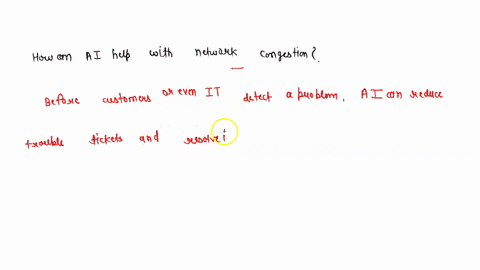 How can AI help with network congestion?
Before customers or even IT detect a problem, AI can reduce
trouble tickets and resolve i